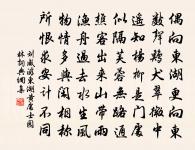 偶向東湖更向東
數聲雞犬翠微中
遙知楊柳是門處
似隔芙蓉無路通
樵客出來山帶雨
漁舟過去水生風
物情多與閑相稱
所恨求安計不同
劉威游東湖黃處士園
林詞典網集